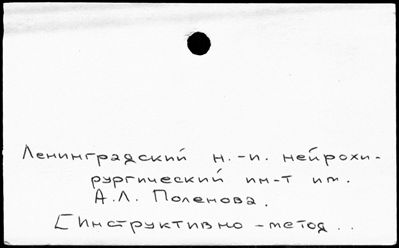 Ленинградский н.-и. нейрохи-
рургический ин-т им.
А.Л. Поленова.
[Инструктивно-метод..